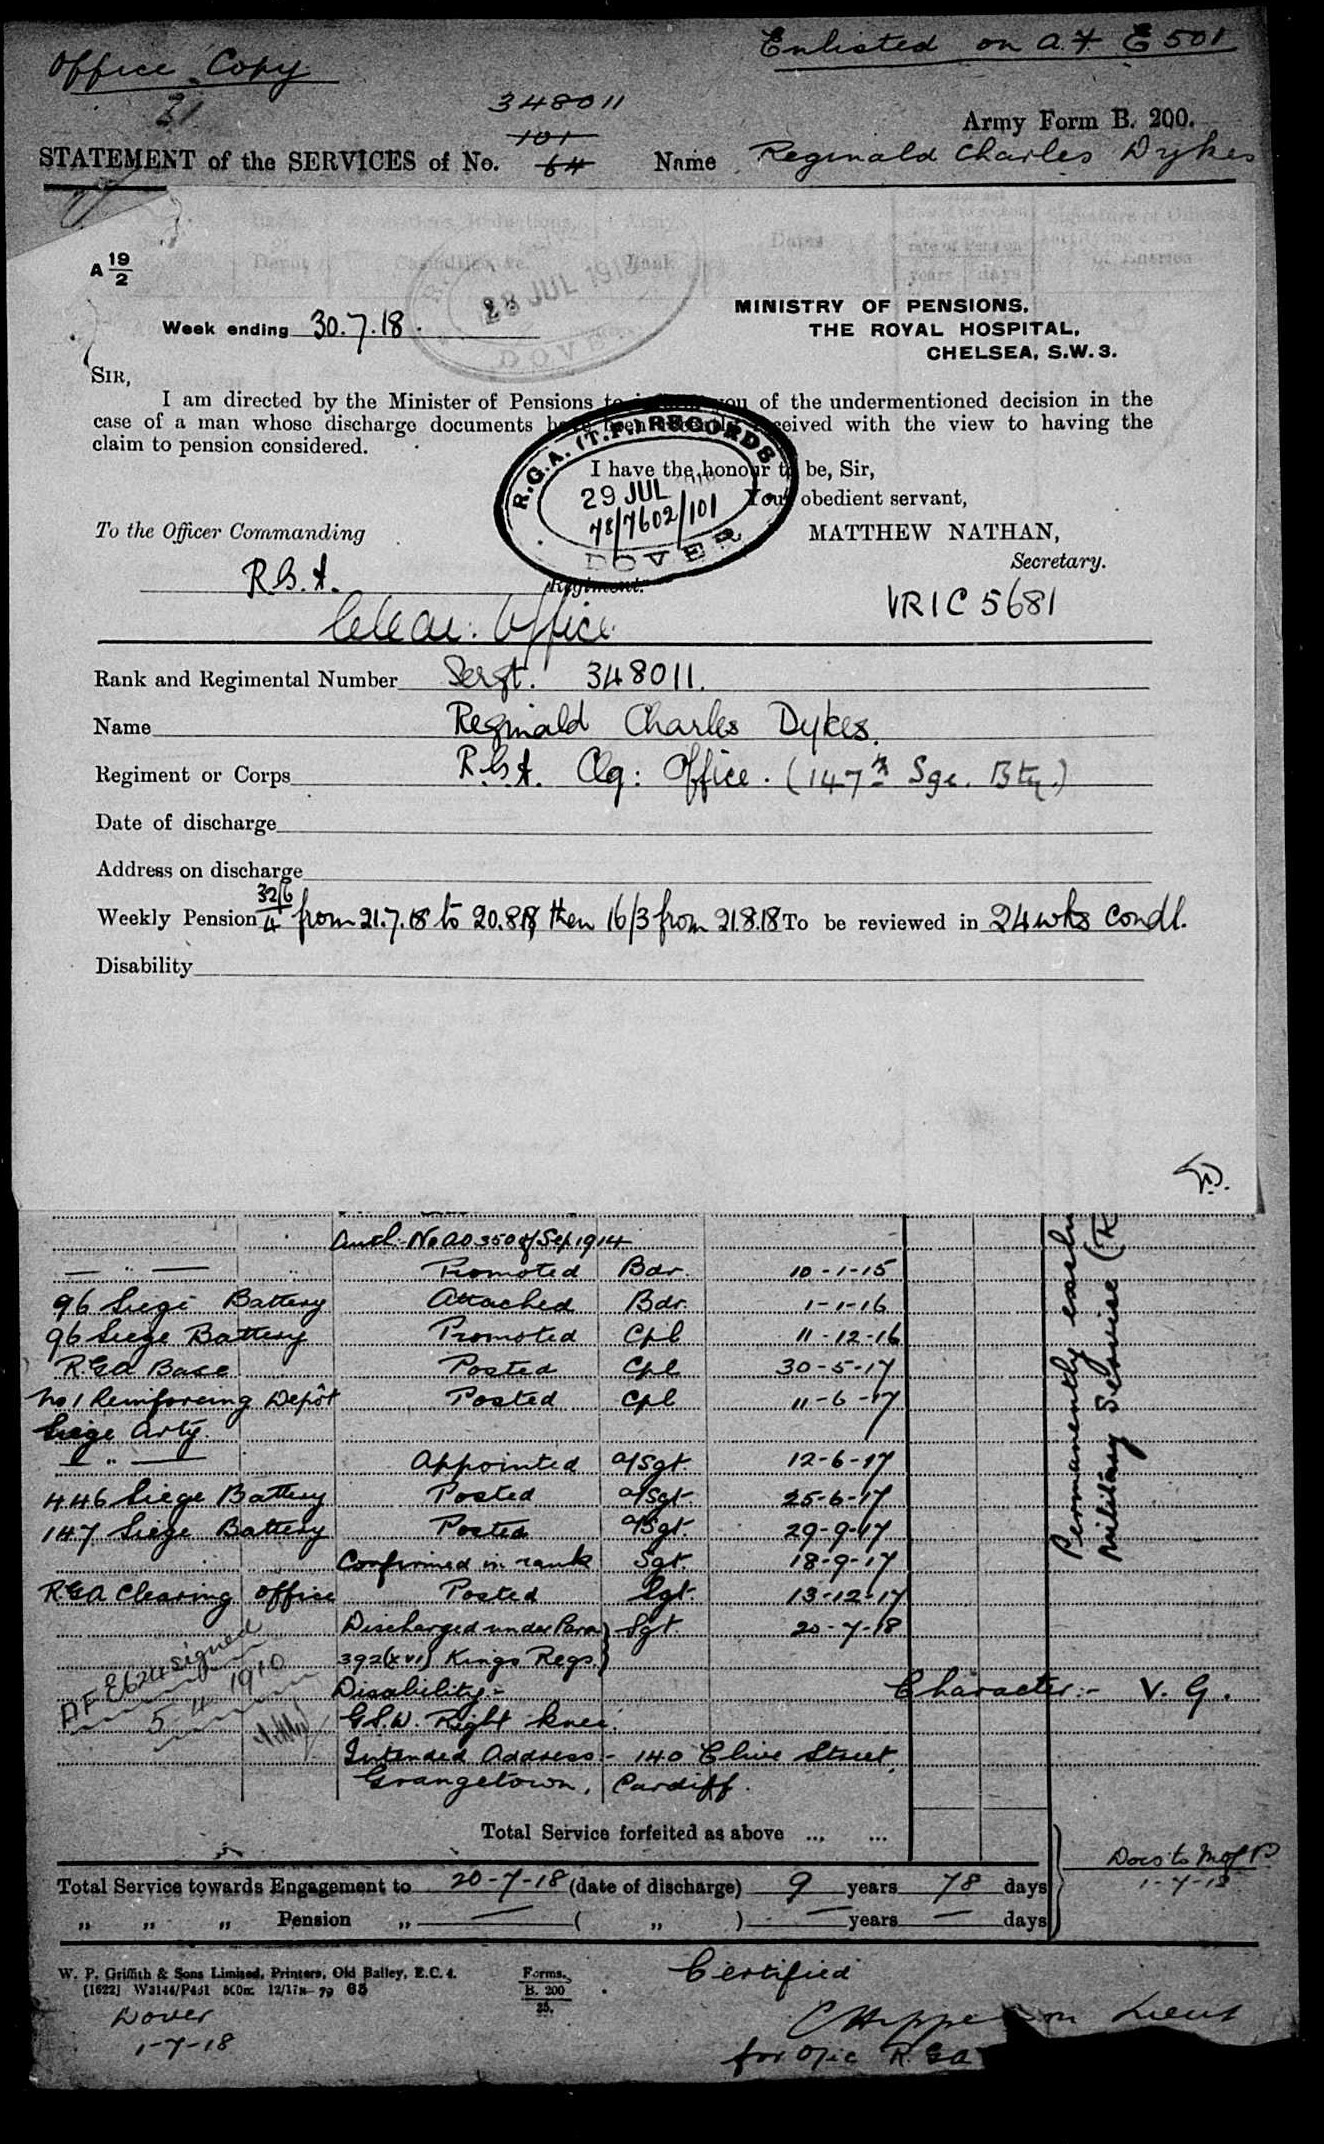 Office Copy
Enlisted on A.F E 501
31
348011
101
Army Form B. 200.
STATEMENT of the SERVICES of No. 64 Name Reginald Charles Dykes
A 19/2
28 JUL 191
DOVER
Week ending 30.7.18.
MINISTRY OF PENSIONS,
THE ROYAL HOSPITAL,
CHELSEA, S.W.3.
SIR,
I am directed by the Minister of Pensions to inform you of the undermentioned decision in the
case of a man whose discharge documents have been received with the view to having the
claim to pension considered.
I have the honour to be, Sir,
Your obedient servant,
R.G.A. (T.F.) RECORDS
29 JUL
78/7602/101
DOVER
To the Officer Commanding
MATTHEW NATHAN,
Secretary.
R.G.A. Regiment.
VRIC 5681
Office
Rank and Regimental Number Sergt. 348011.
Name Reginald Charles Dykes.
Regiment or Corps R.G.A. Clg: Office. (147th Sge. Bty.)
Date of discharge
Address on discharge
Weekly Pension 32/6 / 4 from 21.7.18 to 20.8.18 then 16/3 from 21.8.18 To be reviewed in 24 wks condl.
Disability
Auth. No AO 350 of Sep 1914
— " — " Promoted Bdr. 10-1-15
96 Siege Battery Attached Bdr. 1-1-16
96 Siege Battery Promoted Cpl 11-12-16
RGA Base Posted Cpl 30-5-17
No 1 Reinforcing Depôt Posted Cpl 11-6-17
Siege Arty.
— " — Appointed a/Sgt. 12-6-17
446 Siege Battery Posted a/Sgt. 25-6-17
147 Siege Battery Posted a/Sgt. 29-9-17
Confirmed in rank Sgt. 18-9-17
RGA Clearing Office Posted Sgt. 13-12-17
Discharged under Para Sgt. 20-7-18
392(xvi) Kings Regs.
Disability:-
G.S.W. Right knee.
Intended Address:- 140 Clive Street,
Grangetown, Cardiff.
Character:- V. G.
AF E624 signed
5 4 1910
Permanently
Military Service (R
Total Service forfeited as above ... ...
Docs to M of P.
1-7-18
Total Service towards Engagement to 20-7-18 (date of discharge) 9 years 78 days
„ „ „ Pension „ — ( „ ) — years — days
W. P. Griffith & Sons Limited, Printers, Old Bailey, E.C. 4.
[1622] W3144/P451 500m 12/17s 79 65
Forms.
B. 200
25.
Certified
Dover
1-7-18
Lieut
for O/ic RGA